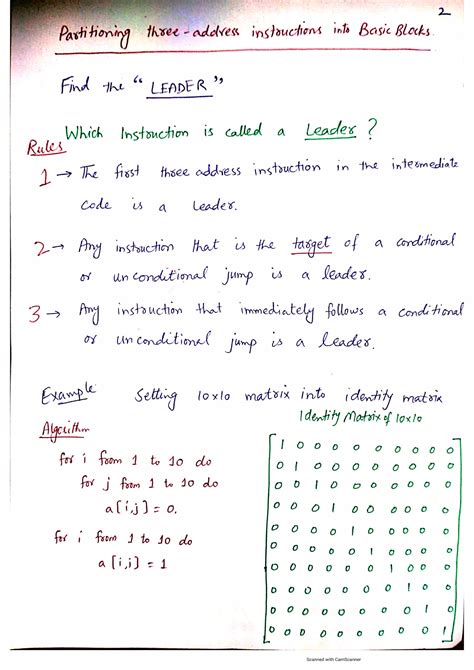 2
Partitioning three-address instructions into Basic Blocks.
Find the "LEADER"
Which Instruction is called a Leader?
Rules
1 → The first three address instruction in the intermediate
code is a leader.
2 → Any instruction that is the target of a conditional
or unconditional jump is a leader.
3 → Any instruction that immediately follows a conditional
or unconditional jump is a leader.
Example Setting 10x10 matrix into identity matrix
Identity Matrix of 10x10
Algorithm
for i from 1 to 10 do
for j from 1 to 10 do
a[i,j] = 0.
for i from 1 to 10 do
a[i,i] = 1
1 0 0 0 0 0 0 0 0 0
0 1 0 0 0 0 0 0 0 0
0 0 1 0 0 0 0 0 0 0
0 0 0 1 0 0 0 0 0 0
0 0 0 0 1 0 0 0 0 0
0 0 0 0 0 1 0 0 0 0
0 0 0 0 0 0 1 0 0 0
0 0 0 0 0 0 0 1 0 0
0 0 0 0 0 0 0 0 1 0
0 0 0 0 0 0 0 0 0 1
Scanned with CamScanner